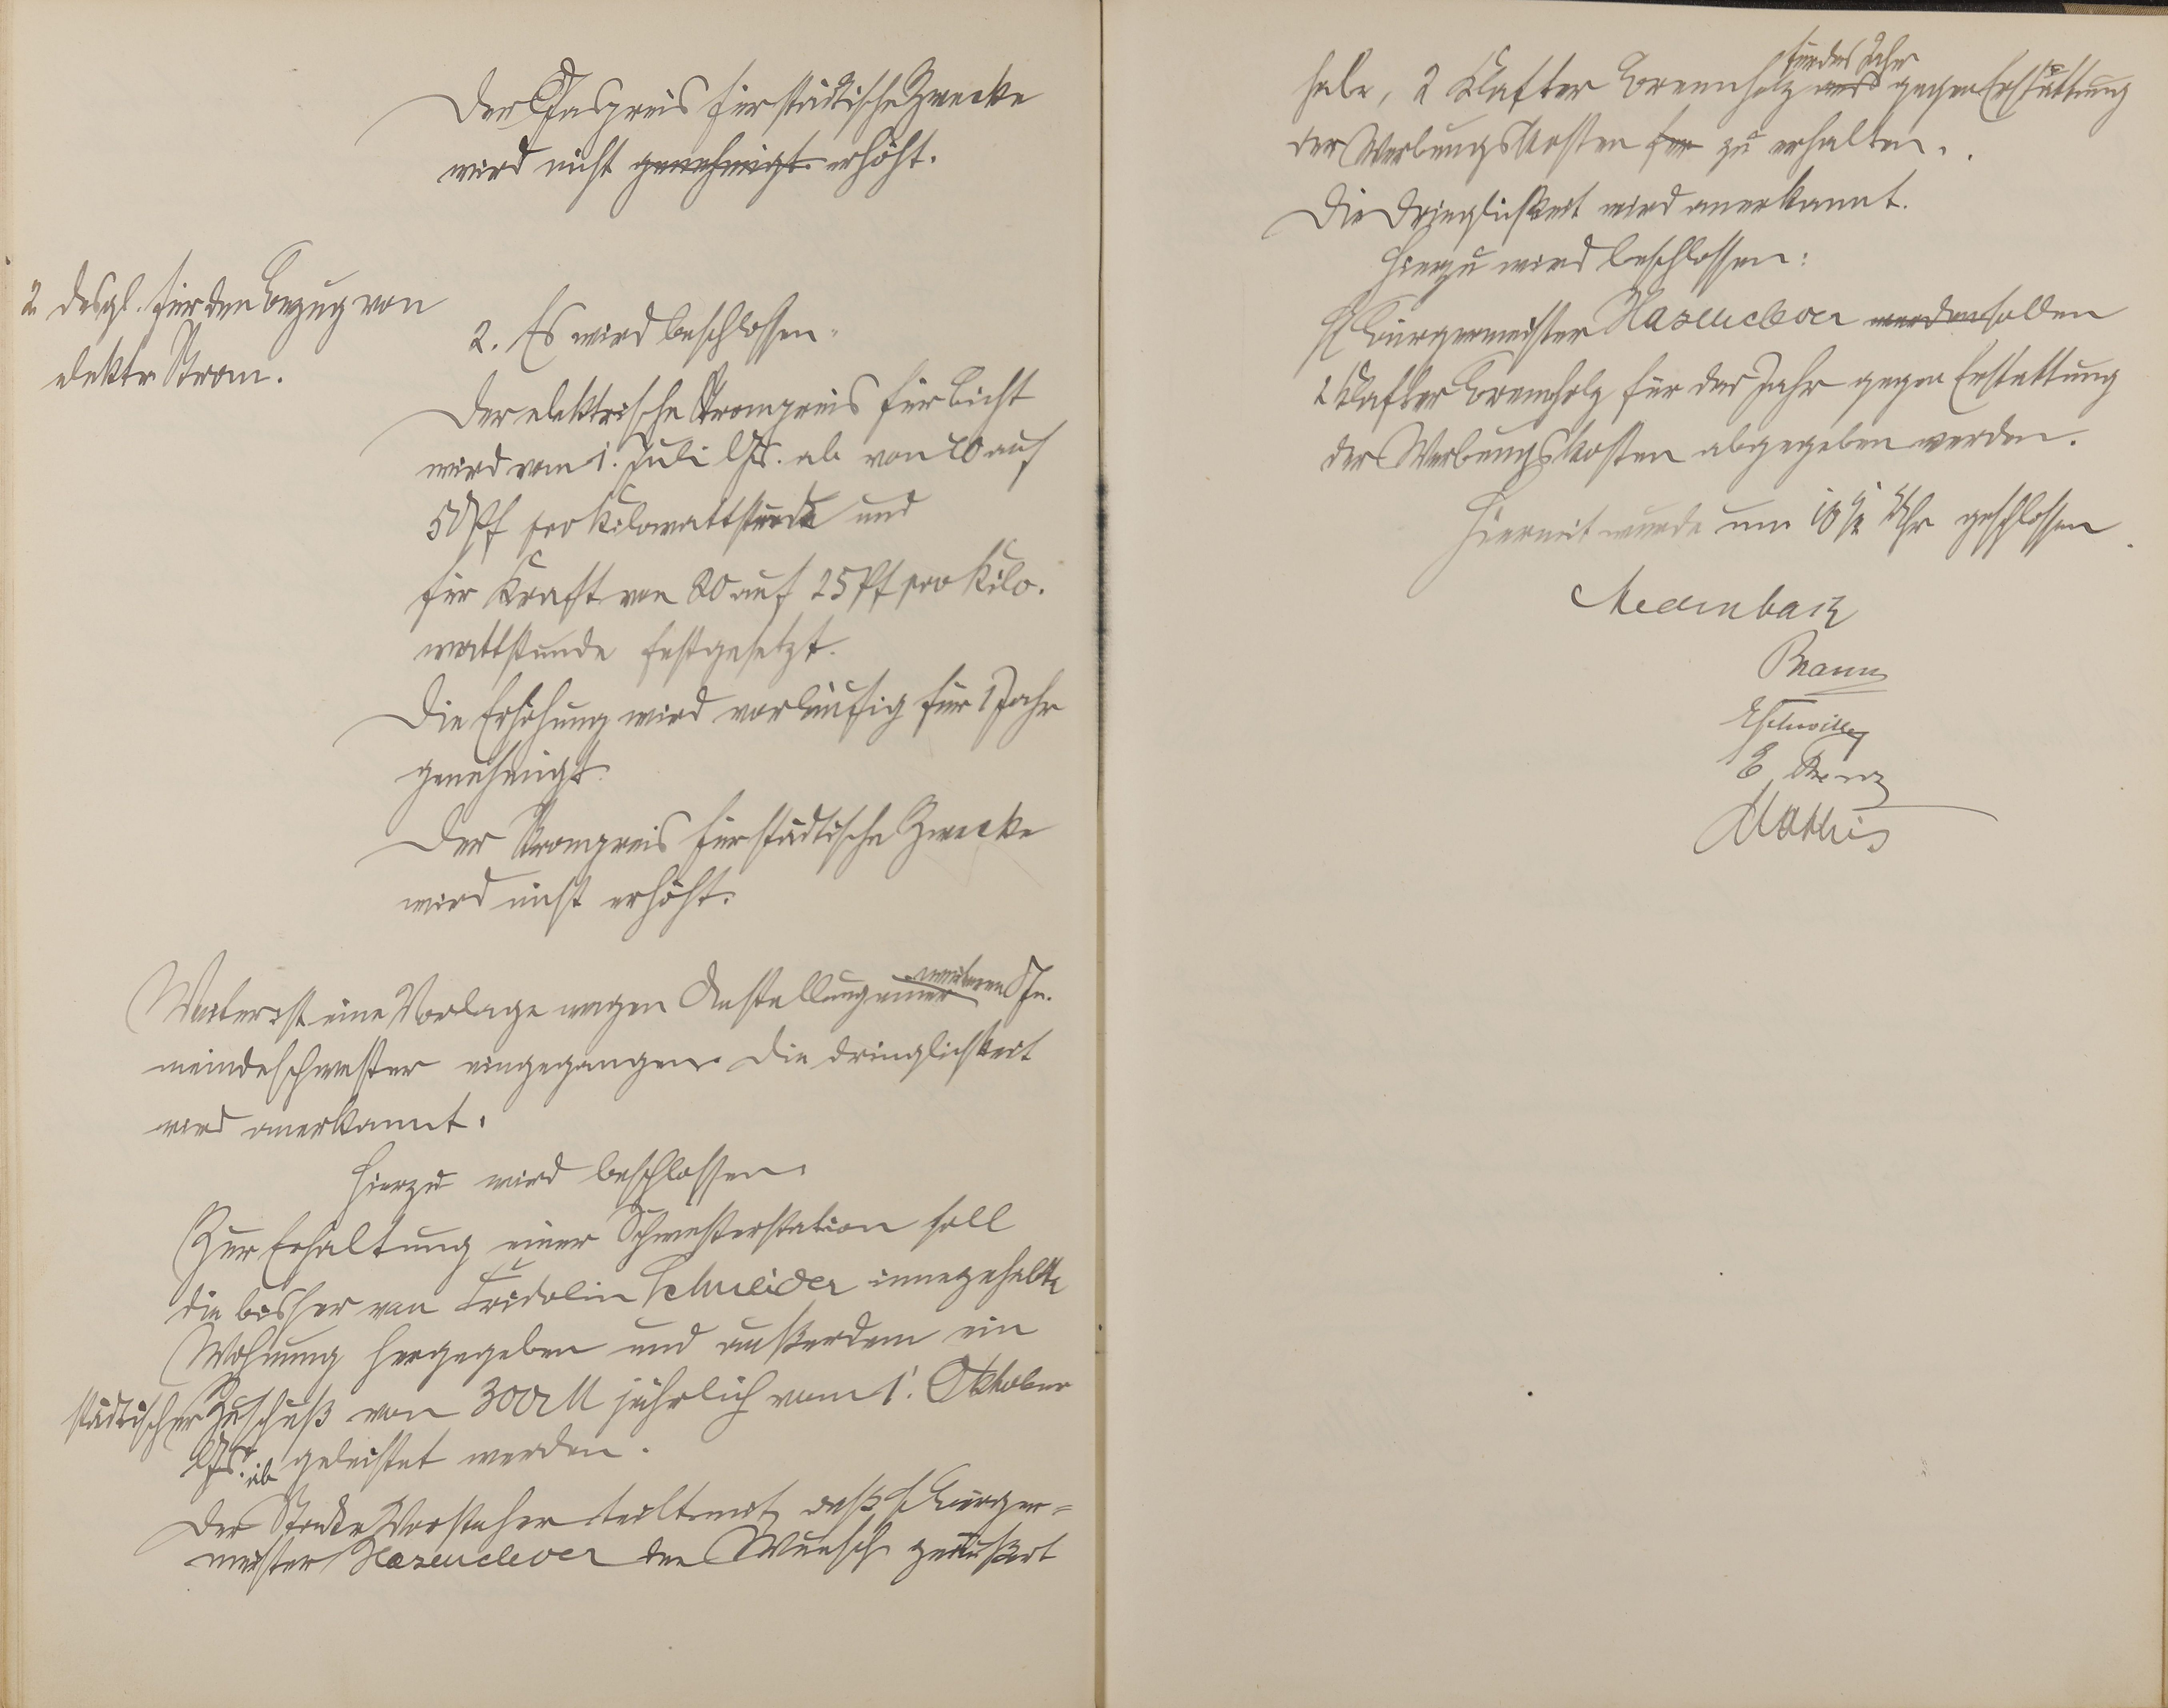 Der Gaspreis für städtische Zwecke
wird nicht genehmigt erhöht.
2. desgl. für den Bezug von
elektr. Strom.
2. Es wird beschlossen:
Der elektrische Strompreis für Licht
wird vom 1. Juli lfd. Js. ab von 40 auf
50 Pf pro Kilowattstunde und
für Kraft von 20 auf 25 Pf pro Kilo-
wattstunde festgesetzt.
Die Erhöhung wird vorläufig für 1 Jahr
genehmigt.
Der Strompreis für städtische Zwecke
wird nicht erhöht.
Weiter ist eine Vorlage wegen Anstellung einer weiteren Ge-
meindeschwester eingegangen. Die Dringlichkeit
wird anerkannt.
Hierzu wird beschlossen:
Zur Erhaltung einer Schwesterstation soll
die bisher von Fridolin Schneider innegehabte
Wohnung hergegeben und außerdem ein
städtischer Zuschuß von 300 M jährlich vom 1. Oktober
lfd. Js. ab geleistet werden.
Der Stadtv. Vorsteher teilt mit, daß H. Bürger-
meister Hasenclever den Wunsch geäußert
habe, 2 Klafter Brennholz für das Jahr gegen Erstattung
der Werbungskosten zu erhalten.
Die Dringlichkeit wird anerkannt.
Hierzu wird beschlossen:
H Bürgermeister Hasenclever werden sollen
2 Klafter Brennholz für das Jahr gegen Erstattung
der Werbungskosten abgegeben werden.
Hiermit wurde um 10 1/2 Uhr geschlossen.
Medenbach
Braun
E.
Mathis